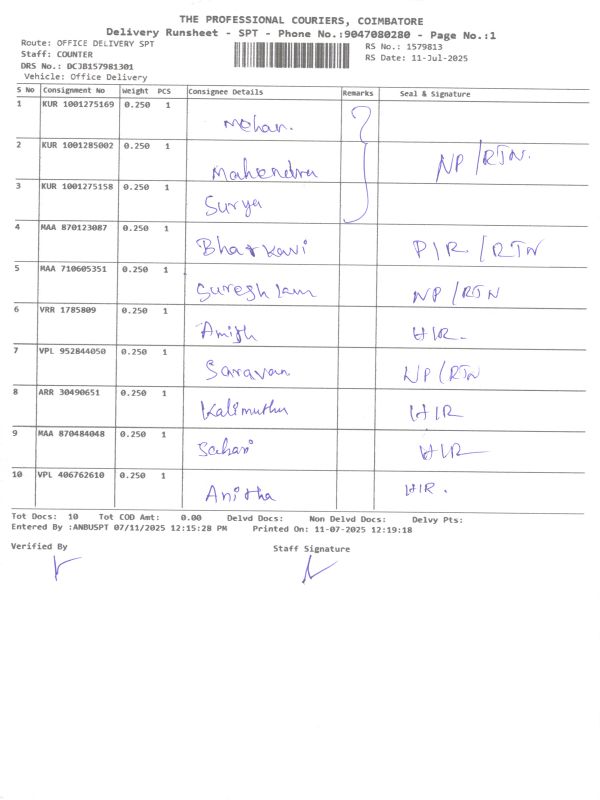 THE PROFESSIONAL COURIERS, COIMBATORE
Delivery Runsheet - SPT - Phone No.:9047080280 - Page No.:1
Route: OFFICE DELIVERY SPT
RS No.: 1579813
Staff: COUNTER
RS Date: 11-Jul-2025
DRS No.: DCJB157981301
Vehicle: Office Delivery
S No Consignment No Weight PCS Consignee Details Remarks Seal & Signature
1 KUR 1001275169 0.250 1 Mohan.
2 KUR 1001285002 0.250 1 Mahendra NP/RTN.
3 KUR 1001275158 0.250 1 Surya
4 MAA 870123087 0.250 1 Bharkavi P/R/RTN
5 MAA 710605351 0.250 1 NP/RTN
6 VRR 1785809 0.250 1 H/R.
7 VPL 952844050 0.250 1 Saravan NP/RTN
8 ARR 30490651 0.250 1 Kalimuthu H/R
9 MAA 870484048 0.250 1 H/R
10 VPL 406762610 0.250 1 Anitha H/R.
Tot Docs: 10 Tot COD Amt: 0.00 Delvd Docs: Non Delvd Docs: Delvy Pts:
Entered By :ANBUSPT 07/11/2025 12:15:28 PM Printed On: 11-07-2025 12:19:18
Verified By
Staff Signature